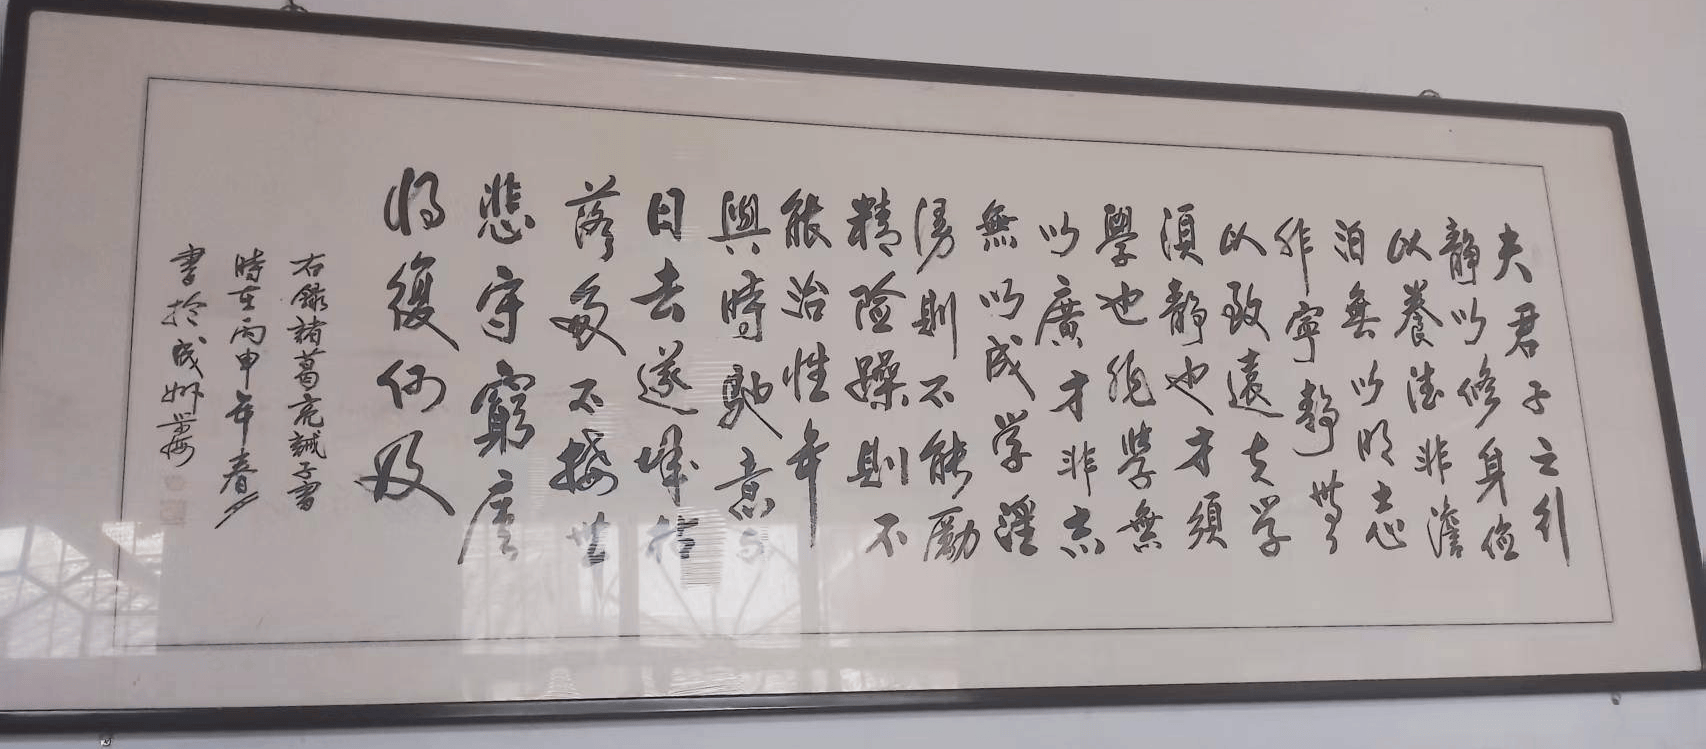 夫君子之行
静以修身俭
以養德非澹
泊無以明志
非寧靜無
以致遠夫学
須静也才須
學也非學無
以廣才非志
無以成学淫
慢則不能勵
精险躁則不
能治性年
與時馳意与
日去遂成枯
落多不接世
悲守窮廬
将復何及
右録諸葛亮誡子書
時在丙申年春月
書於成